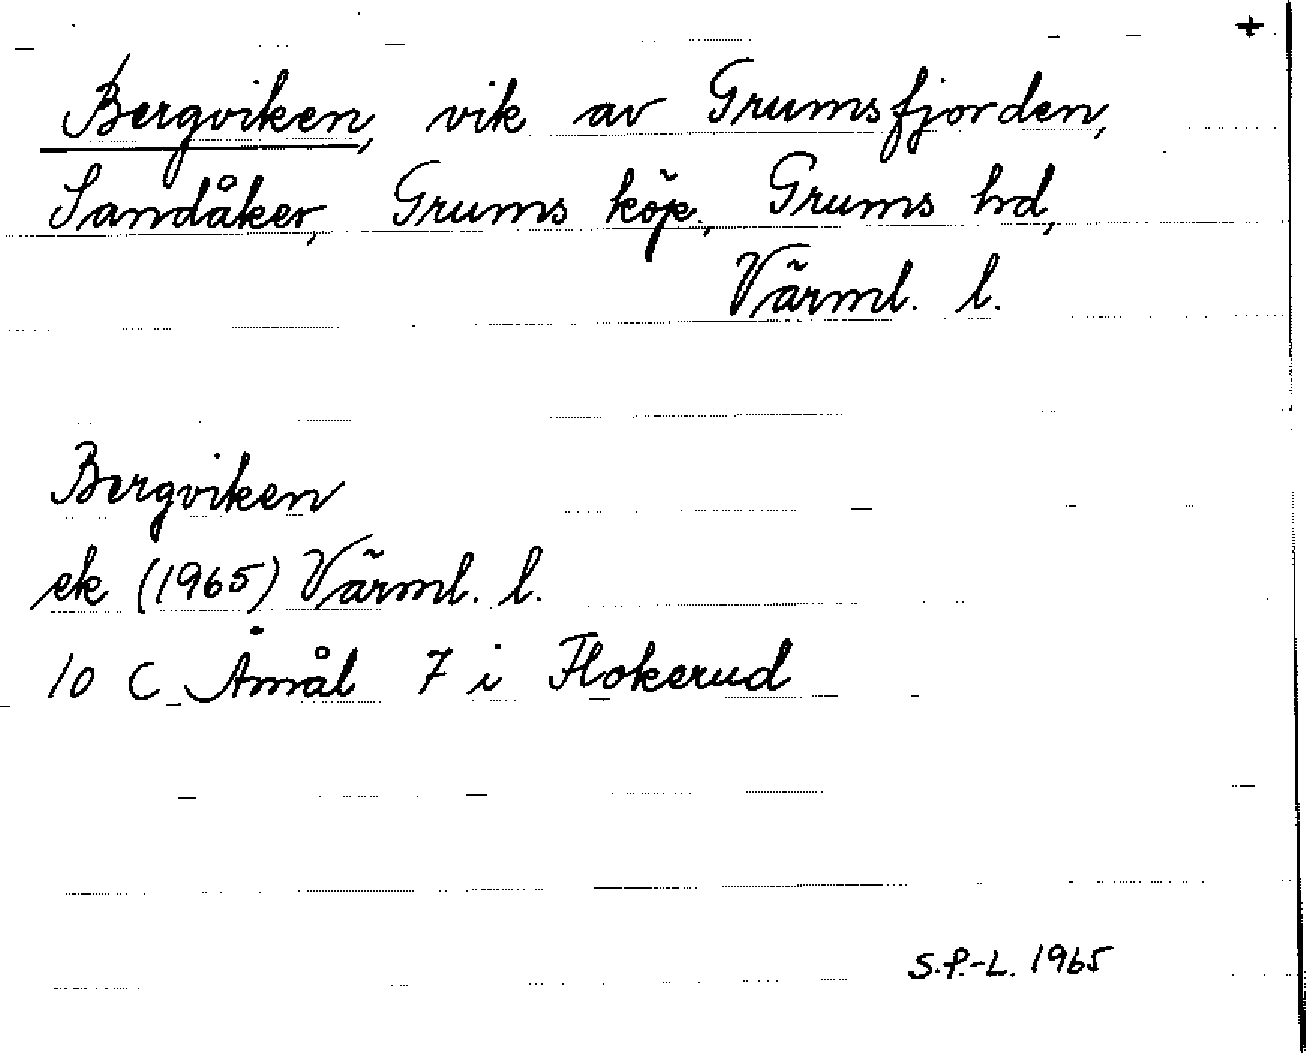 +
Bergviken, vik av Grumsfjorden,
Sandåker, Grums köp., Grums hd,
Värml. l.
Bergviken
ek (1965) Värml. l.
10 C Åmål 7 i Flokerud
S.P.-L. 1965